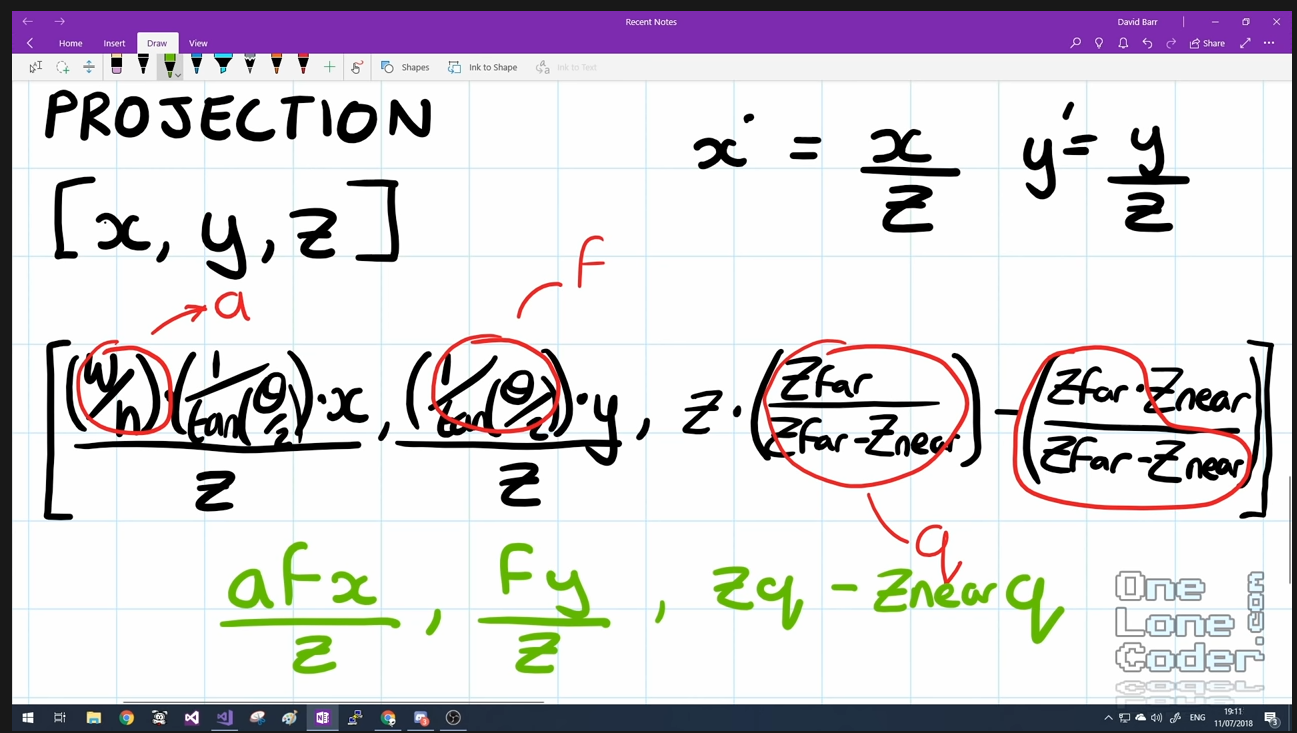 Recent Notes
David Barr
Home Insert Draw View
Share
Shapes Ink to Shape Ink to Text
PROJECTION
x' = x/z y' = y/z
[x, y, z]
a
F
[(w/h)·(1/tan(θ/2))·x/z, (1/tan(θ/2))·y/z, z·(Zfar/Zfar-Znear) - (Zfar·Znear/Zfar-Znear)]
q
aFx/z, Fy/z, zq - Znear q
One
Lone
Coder.com
ENG
19:11
11/07/2018
3